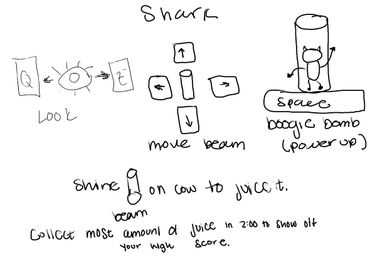 Shark
Q E
Look
move beam
Space
boogie bomb
(power up)
Shine on cow to juice it.
beam
Collect most amount of juice in 2:00 to show off
your high score.